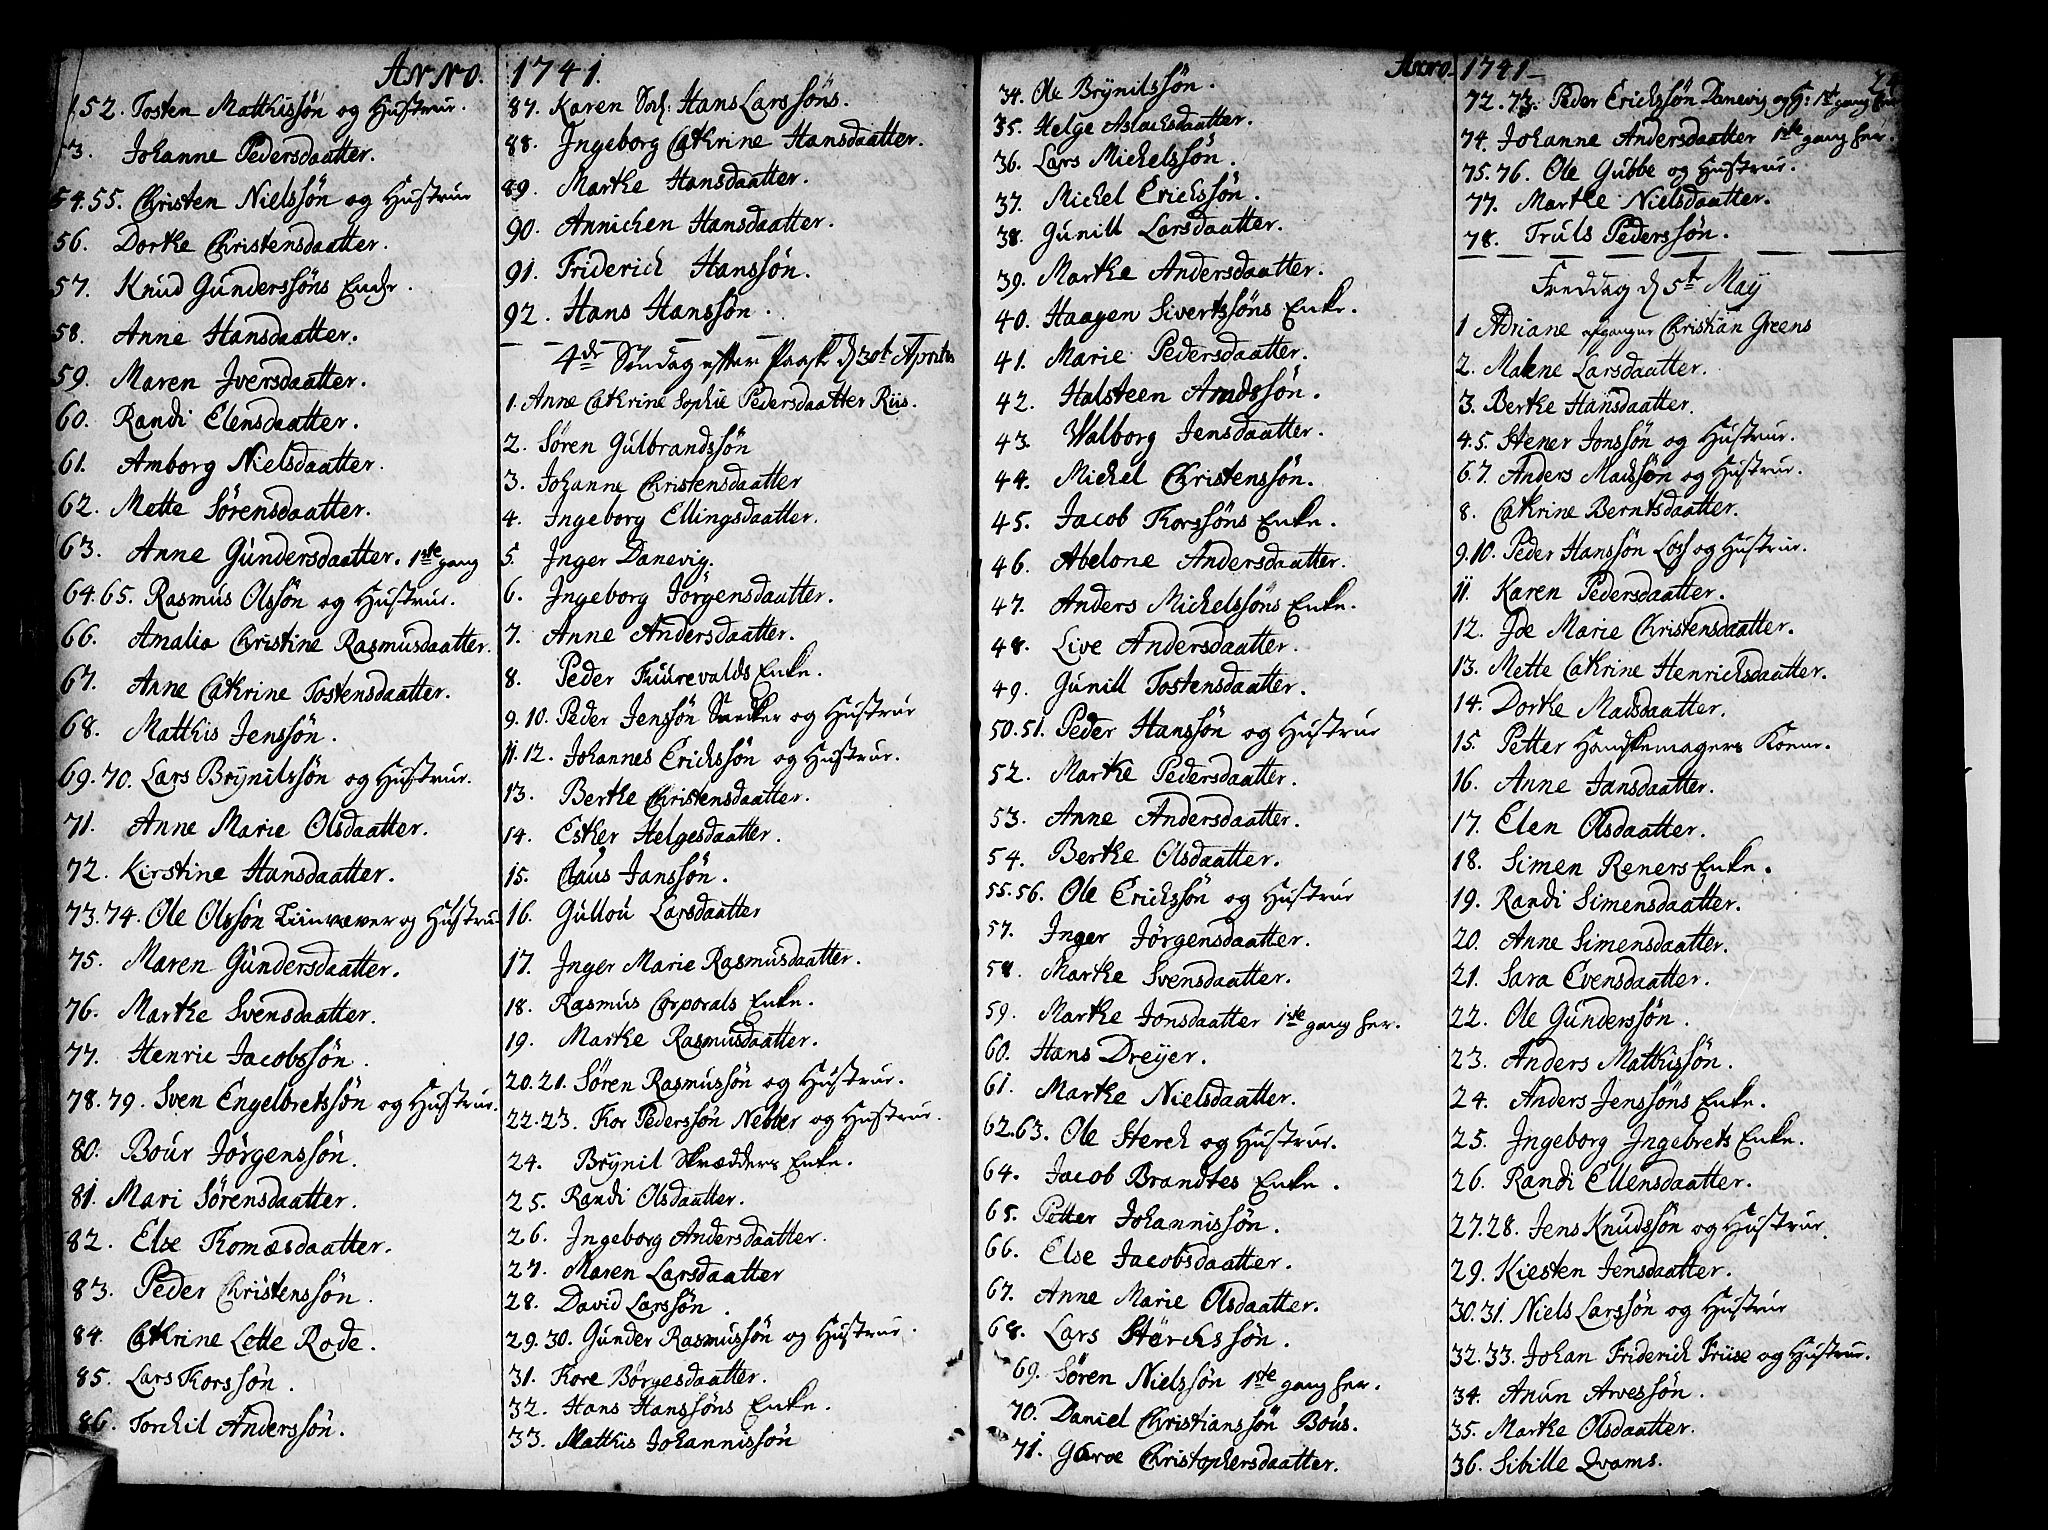 ANNO.
152. Tosten Matthissøn og Hustrur.
53. Johanne Pedersdaatter.
54.55. Christen Nielssøn og Hustrur
56. Dorthe Christensdaatter.
57. Knud Gunderssøns Enche.
58. Anne Hansdaatter.
59. Maren Jversdaatter.
60. Randi Elensdaatter.
61. Amborg Nielsdaatter.
62. Mette Sørensdaatter.
63. Anne Gundersdaatter. 1ste gang
64.65. Rasmus Olssøn og Hustrur.
66. Amalia Christine Rasmusdaatter.
67. Anne Cathrine Tostensdaatter.
68. Matthis Jenssøn.
69.70. Lars Brÿnilssøn og Hustrur.
71. Anne Marie Olsdaatter.
72. Kirstine Hansdaatter.
73.74. Ole Olssøn Liinvæver og Hustru
75. Maren Gundersdaatter.
76. Marthe Svensdaatter.
77. Henric Jacobssøn.
78.79. Sven Engelbretssøn og Hustrur.
80. Bour Jørgenssøn.
81. Mari Sørensdaatter.
82. Else Thomæsdaatter.
83. Peder Christenssøn.
84. Cathrine Lette Rode.
85. Lars Thorssøn.
86. Torchil Anderssøn.
1741.
87. Karen Hans Larssøns.
88. Jngeborg Cathrine Hansdaatter.
89. Marthe Hansdaatter.
90. Annichen Hansdaatter.
91. Friderich Hanssøn.
92. Hans Hanssøn.
4de Søndag efter Paaske d 30t Aprilis
1. Anne Cathrine Sophie Pedersdaatter Riis.
2. Søren Gulbrandssøn
3. Johanne Christensdaatter
4. Jngeborg Ellingsdaatter.
5. Jnger Danevig.
6. Jngeborg Jørgensdaatter.
7. Anne Andersdaatter.
8. Peder Fuurevalds Enke.
9.10. Peder Jenssøn Snedker og Hustrur
11.12. Johannes Erichssøn og Hustrur.
13. Berthe Christensdaatter.
14. Esther Helgesdaatter.
15. Claus Janssøn.
16. Gullou Larsdaatter
17. Jnger Marie Rasmusdaatter.
18. Rasmus Corporals Enke.
19. Marthe Rasmusdaatter.
20.21. Søren Rasmussøn og Hustrur.
22.23. Thor Pederssøn Netler og Hustrur.
24. Brÿnil Skrædders Enke.
25. Randi Olsdaatter.
26. Jngeborg Andersdaatter.
27. Maren Larsdaatter
28. David Larssøn.
29.30. Gunder Rasmussøn og Hustrur.
31. Thore Børgesdaatter.
32. Hans Hanssøns Enke.
33. Matthis Johannissøn
Anno
34. Ole Brÿnilssøn.
35. Helge Aslachsdaatter.
36. Lars Michelssøn.
37. Michel Erichssøn.
38. Gunill Larsdaatter.
39. Marthe Andersdaatter.
40. Haagen Sivertssøns Enke.
41. Marie Pedersdaatter.
42. Halsteen Arndssøn.
43. Walborg Jensdaatter.
44. Michel Christenssøn.
45. Jacob Thorssøns Enke.
46. Abelone Andersdaatter.
47. Anders Michelssøns Enke.
48. Live Andersdaatter.
49. Gunill Tostensdaatter.
50.51. Peder Hanssøn og Hustrur
52. Marthe Pedersdaatter.
53. Anne Andersdaatter.
54. Berthe Olsdaatter.
55.56. Ole Erichssøn og Hustrur
57. Jnger Jørgensdaatter.
58. Marthe Svensdaatter.
59. Marthe Jonsdaatter 1ste gang her.
60. Hans Dreÿer.
61. Marthe Nielsdaatter.
62.63. Ole Sterch og Hustrur.
64. Jacob Brandtes Enke.
65. Petter Johannissøn.
66. Else Jacobsdaatter.
67. Anne Marie Olsdaatter.
68. Lars Stärchssøn.
69. Søren Nielssøn 1ste gang her.
70. Daniel Christianssøn Bous.
71. Christophersdaatter.
1741
72.73. Peder Erichssøn Danevig og H: 1ste gang
74. Johanne Andersdaatter 1ste gang her.
75.76. Ole Gubbe og Hustrur.
77. Marthe Nielsdaatter.
78. Truls Pederssøn.
Freddag d 5t Maÿ
1 Adriane Christian Greens
2. Malene Larsdaatter.
3. Berthe Hansdaatter.
4.5. Stener Jonssøn og Hustrur.
6.7. Anders Madssøn og Hustrur.
8. Cathrine Berntsdaatter.
9.10. Peder Hanssøn Loss og Hustrur.
11. Karen Pedersdaatter.
12. Jde Marie Christensdaatter.
13. Mette Cathrine Henrichsdaatter.
14. Dorthe Madsdaatter.
15. Petter Handskemagers Kone.
16. Anne Jansdaatter.
17. Elen Olsdaatter.
18. Simen Reners Enke.
19. Randi Simensdaatter.
20. Anne Simensdaatter.
21. Sara Evensdaatter.
22. Ole Gunderssøn.
23. Anders Matthissøn.
24. Anders Jenssøns Enke.
25. Jngeborg Jngebrets Enke.
26. Randi Ellensdaatter.
27.28. Jens Knudssøn og Hustrur.
29. Kiesten Jensdaatter.
30.31. Niels Larssøn og Hustrur
32.33. Johan Friderich Friise og Hustrur.
34. Anun Arvessøn.
35. Marthe Olsdaatter.
36. Sibille Qvams.